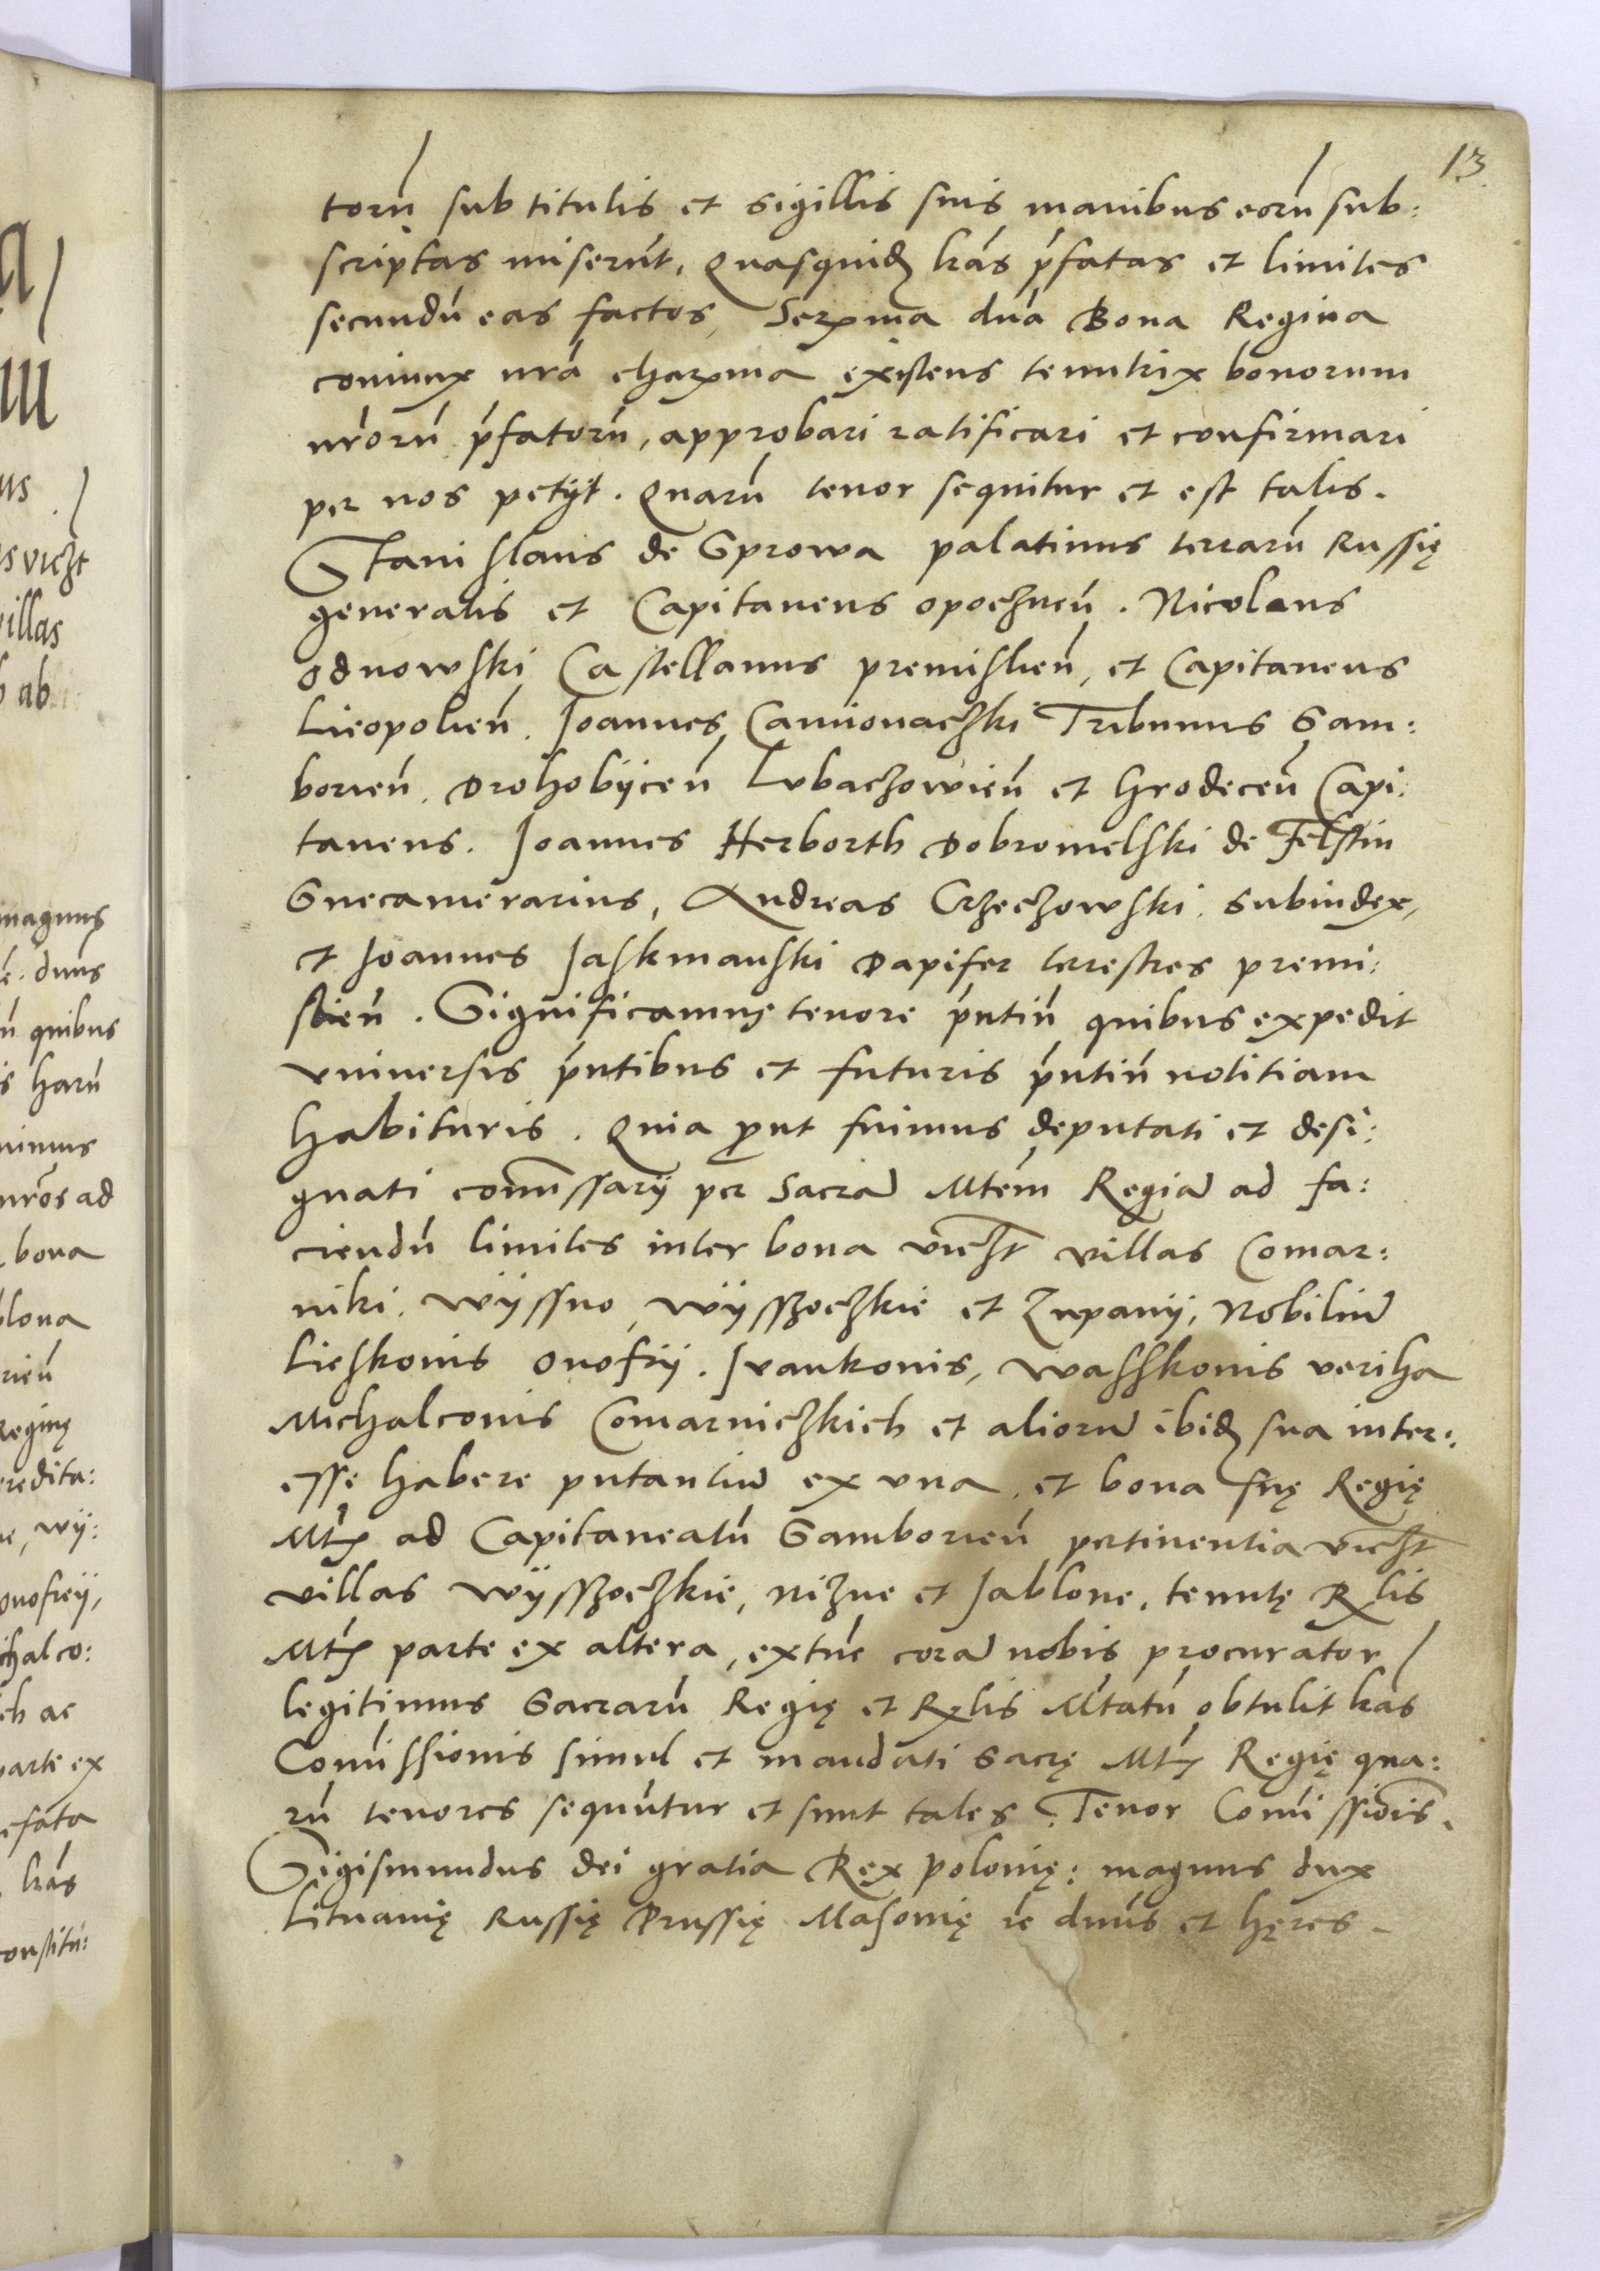 13
torū sub titulis et sigillis suis manibus eorū sub:
scriptas miserūt, Quasquidē lrās p̄fatas et limites
secundū eas factos, Serx̄ma dn̄a Bona Regina
coniunx nrā charx̄ma existens tenutrix bonorum
nrōrū p̄fatorū, approbari ratificari et confirmari
per nos petÿt. Quarū tenor sequitur et est talis.
Stanislaus de Sprowa palatinus terrarū Russię
generalis et Capitaneus opocznen̄. Nicolaus
odnowski Castellanus premislien̄, et Capitaneus
Lieopolien̄. Joannes Camionaczki Tribunus Sam:
borien̄. Drohobÿcen̄ Lubaczowien̄ et Hrodecen̄ Capi:
taneus. Joannes Herborth Dobromelski de Felstin
Succamerarius, Andreas Czechowski. Subiudex,
et Joannes Jaskmanski Dapifer terrestres premi:
slien̄. Significamus tenore p̄ntiū quibus expedit
vniuersis p̄ntibus et futuris p̄ntiū notitiam
habituris. Quia p̱ut fuimus deputati et desi:
gnati com̄issarÿ per Sacrā Mtēm Regiā ad fa:
ciendū limites inter bona vicz̄t villas Comar:
niki. Wÿssno, Wÿsszoczkie et Zupanÿ, Nobiliū
Lieskonis Onofrÿ. Jvankonis, Wasskonis veriha
Michalconis Comarniczkich et aliorū ibidē sua inter:
esse habere putantiū ex vna, et bona suę Regię
Mtis ad Capitaneatū Samborien̄ pertinentia vicz̄t
villas Wÿsszoczkie, Nizne et Jablone, tenutę Rx̄lis
Mtis parte ex altera, extūc corā nobis procurator
legitimus Sacrarū Regię et Rx̄lis Mtātū obtulit lrās
Com̄issionis simul et mandati Sacrę Mtis Regię qua:
rū tenores sequūtur et sunt tales. Tenor Com̄issiōis.
Sigismundus dei gratia Rex polonię: magnus dux
Lituanię Russię Prussię Masouię rē dnūs et hęres.